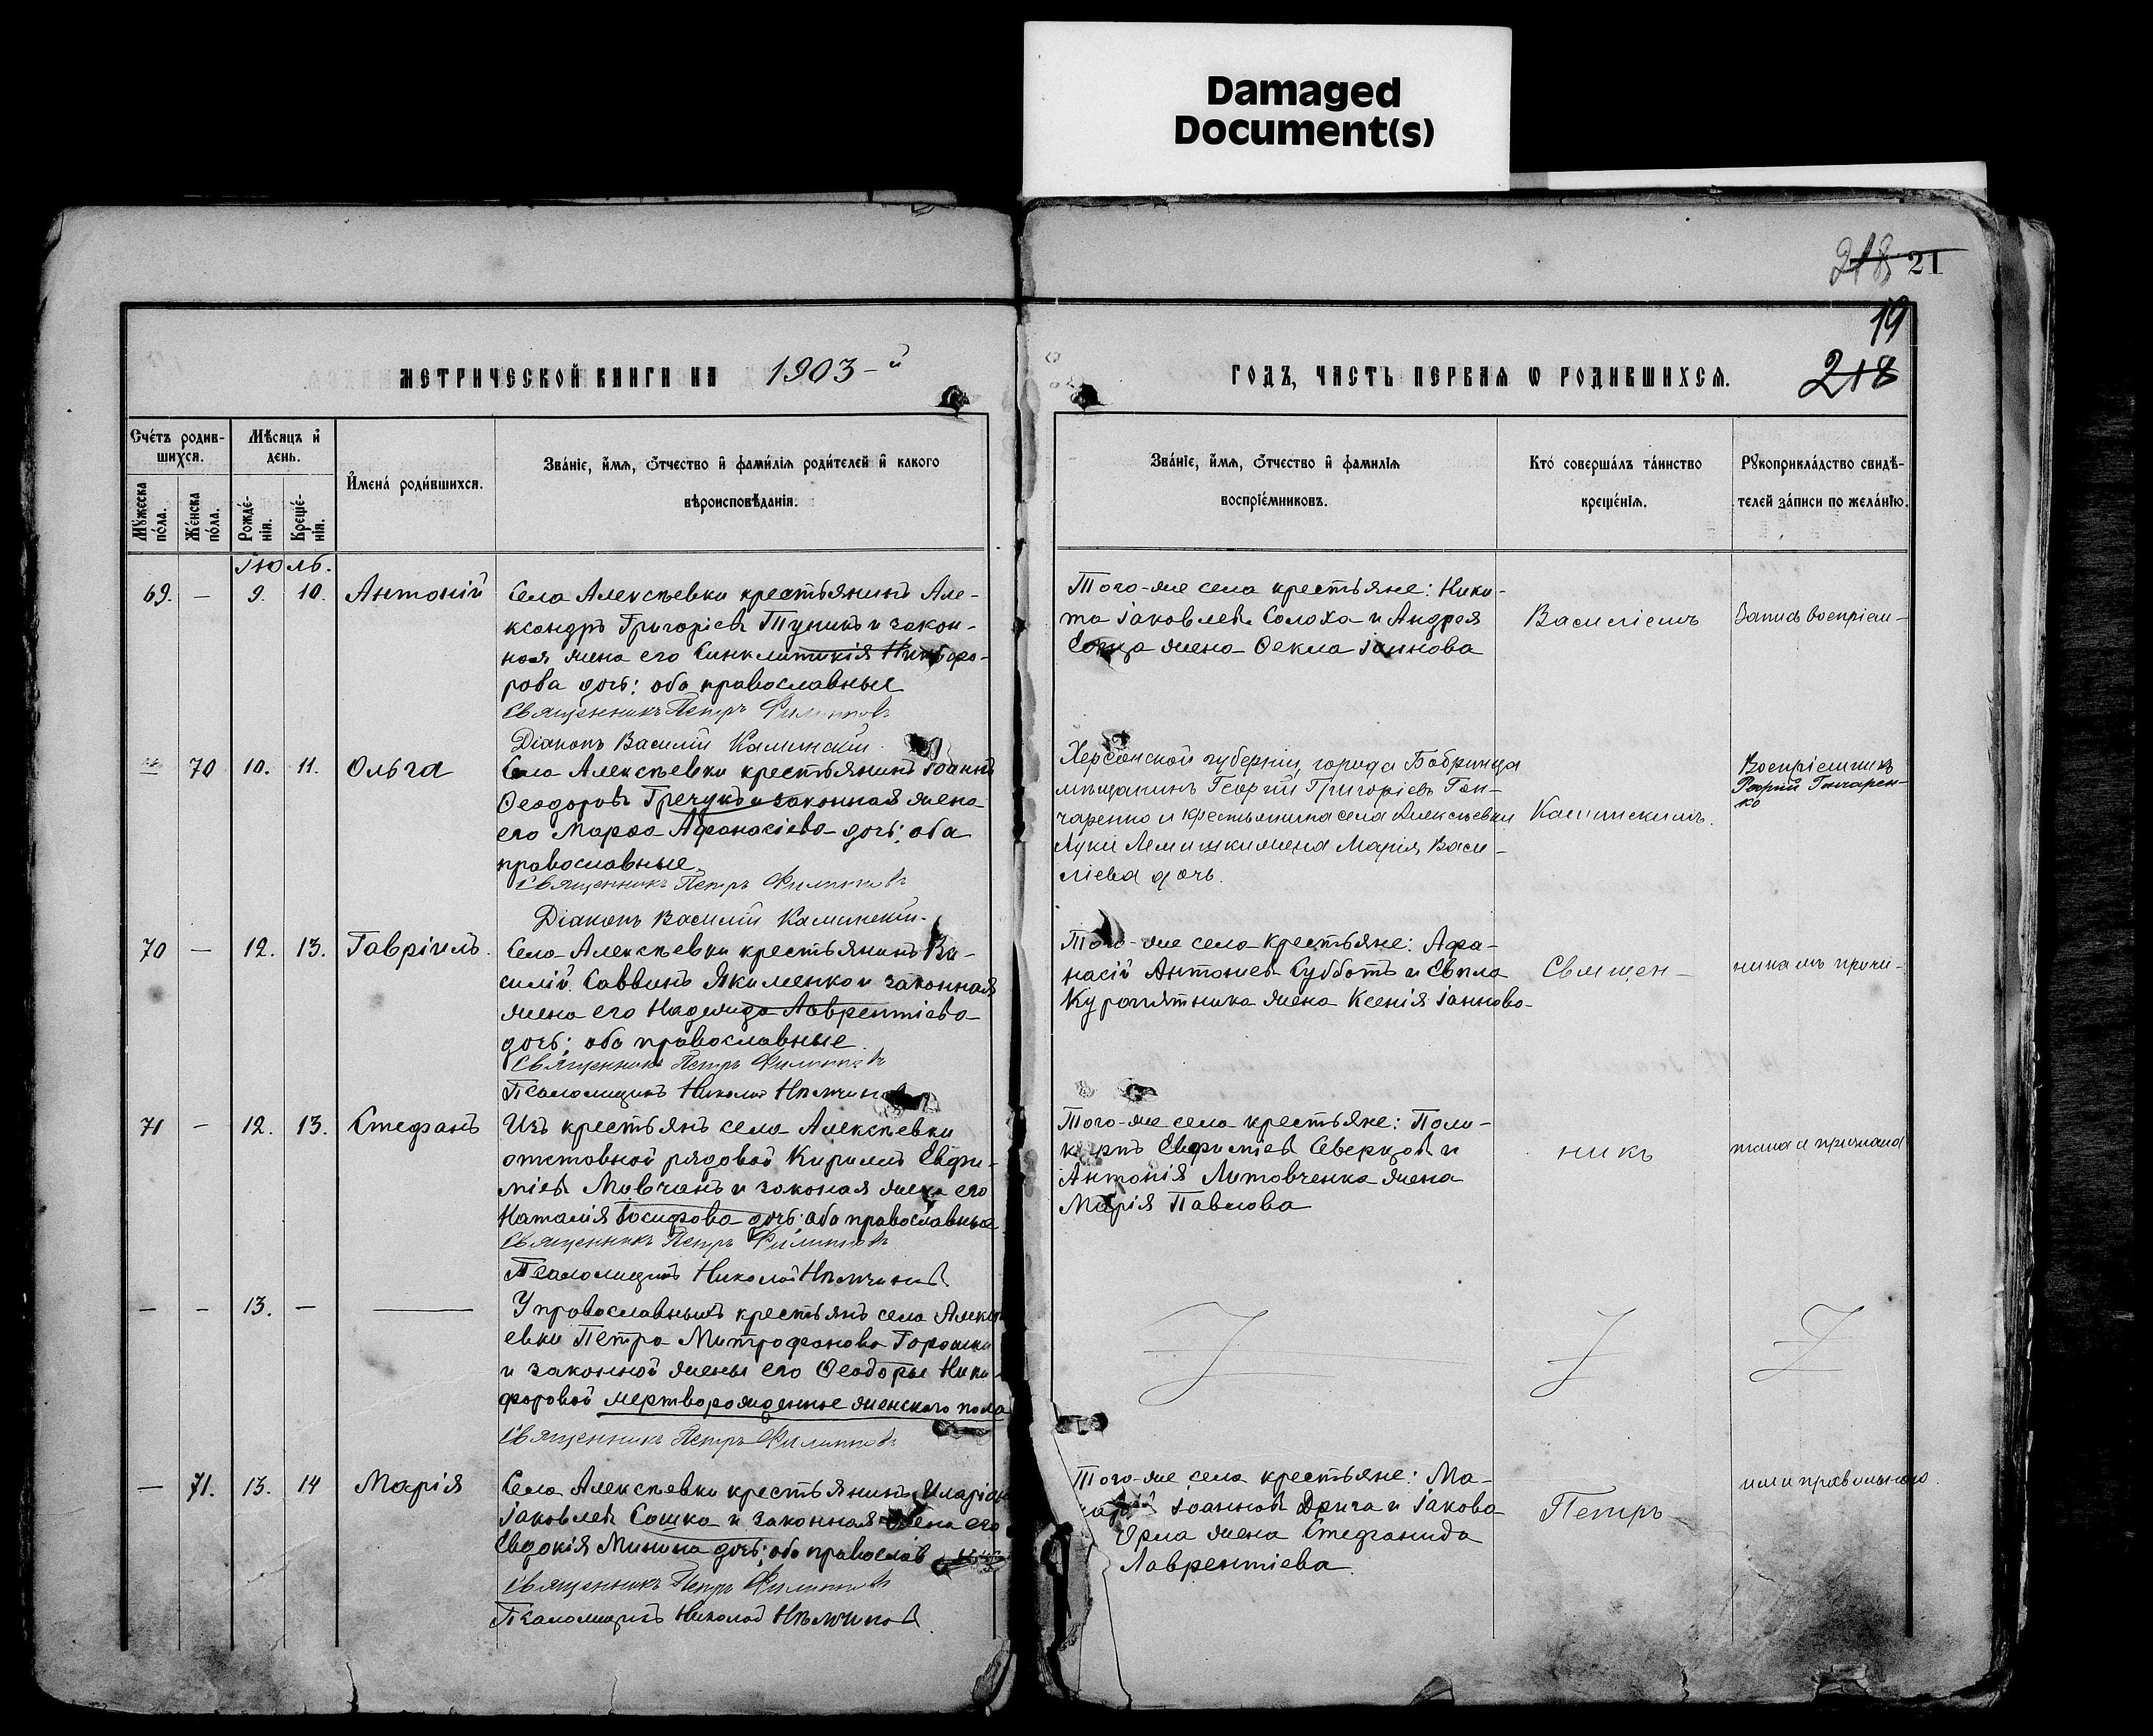 Damaged
Document(s)
218 21
19
218
МЕТРИЧЕСКОЙ КНИГИ НА 1903-й
ГОДЪ, ЧАСТЬ ПЕРВАЯ Ѡ РОДИВШИХСЯ.
Счётъ родив-
шихся.
Мѣсяцъ и
день.
Имена родившихся.
Званіе, имя, отчество и фамилія родителей и какого
вѣроисповѣданія.
Мужеска
пола.
Женска
пола.
Рожде-
нія.
Креще-
нія.
Званіе, имя, отчество и фамилія
воспріемниковъ.
Кто совершалъ таинство
крещенія.
Рукоприкладство свидѣ-
телей записи по желанію.
Іюль.
69. — 9. 10. Антоній
Села Алексѣевки крестьянинъ Але-
ксандръ Григоріевъ Тупикъ и закон-
ная жена его Синклитикія Никифо-
рова дочь: оба православные
Священникъ Петръ Филипповъ
Діаконъ Василій Калинскій
Того-же села крестьяне: Ники-
та Іаковлевъ Солоха и Андрея
жена Ѳекла Іоаннова
Василіемъ
Запись воспріем-
— 70 10. 11. Ольга
Села Алексѣевки крестьянинъ Іоаннъ
Ѳеодоровъ Гречукъ и законная жена
его Марѳа Афанасіева дочь: оба
православные.
Священникъ Петръ Филипповъ
Діаконъ Василій Калинскій.
Херсонской губерніи, города Бобринца
мѣщанинъ Георгій Григоріевъ Гон-
чаренко и крестьянина села Алексѣевки
Луки жена Марія Васи-
ліева дочь.
Калинскимъ.
Воспріемникъ
Георгій Гончарен-
ко
70 — 12. 13. Гавріилъ.
Села Алексѣевки крестьянинъ Ва-
силій Саввинъ Якименко и законная
жена его Надежда Лаврентіева
дочь; оба православные.
Священникъ Петръ Филипповъ
Псаломщикъ Николай Нѣмчиновъ
Того-же села крестьяне: Афа-
насій Антоніевъ Субботъ и Евпла
Куропятника жена Ксенія Іаннова
Священ-
никамъ прочи-
71 — 12. 13. Стефанъ
Изъ крестьянъ села Алексѣевки
отставной рядовой Кириллъ Евфи-
міевъ Мовчанъ и законая жена его
Наталія Іосифова дочь: оба православные
Священникъ Петръ Филипповъ
Псаломщикъ Николай Нѣмчиновъ
Того-же села крестьяне: Поли-
карпъ Евфиміевъ Северцовъ и
Антонія Литовченка жена
Марія Павлова
никъ
тана и признана
— — 13. — —
У православныхъ крестьянъ села Алексѣ-
евки Петра Митрофанова Горошки
и законной жены его Ѳеодоры Ники-
форовой мертворожденное женского пола
Священникъ Петръ Филипповъ
— 71. 13. 14 Марія
Села Алексѣевки крестьянинъ Иларіонъ
Іаковлевъ Сошка и законная жена его
Евдокія Минина дочь; оба православ
Священникъ Петръ Филипповъ
Псаломщикъ Николай Нѣмчиновъ
Того-же села крестьяне: Ма-
Іоанновъ Дрига и Іакова
Орла жена Стефанида
Лаврентіева.
Петръ
ими правильною.